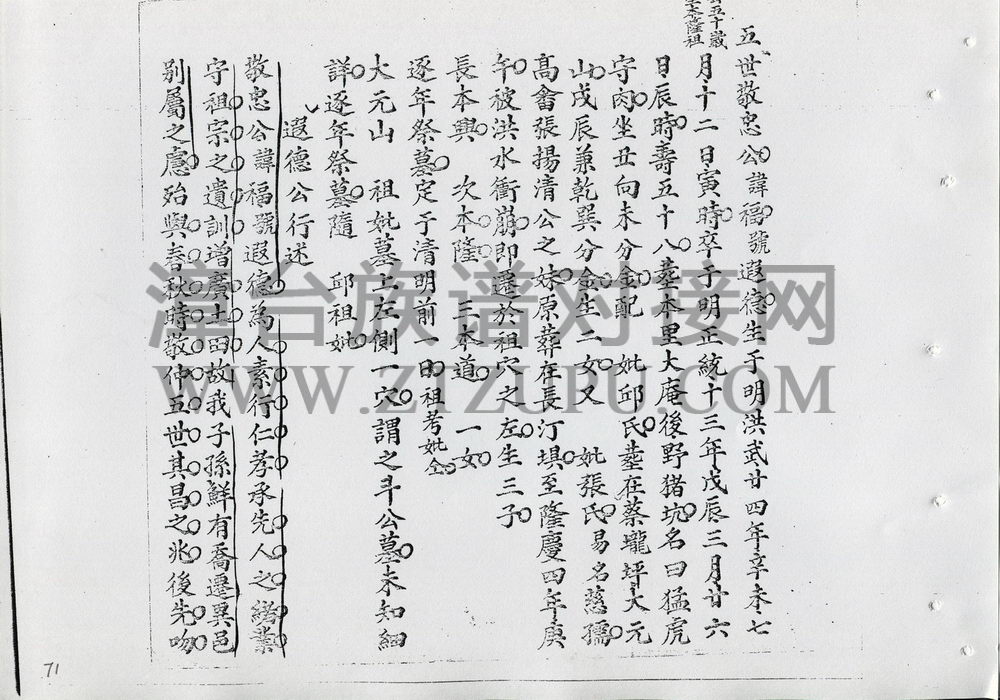 五世敬忠公諱福號遐德生于明洪武廿四年辛未七
月十二日寅時卒于明正統十三年戊辰三月廿六
日辰時壽五十八塟本里大庵後野猪坑名曰猛虎
守肉坐丑向未分金配 妣邱氏塟在蔡壠坪大元
山戌辰兼乾巽分金生二女又 妣張氏易名慈孺
高畲張揚清公之妹原葬在長汀埧至隆慶四年庚
午被洪水衝崩即遷於祖穴之左生三子
長本興 次本隆 三本道 一女
逐年祭墓定于清明前一日祖考妣仝
大元山 祖妣墓上左側一穴謂之斗公墓未知細
詳逐年祭墓隨 邱祖妣
遐德公行述
敬忠公諱福號遐德為人素行仁孝承先人之緒業
守祖宗之遺訓增廣土田故我子孫鮮有喬遷異邑
別屬之慮殆與春秋時敬仲五世其昌之兆後先吻
漳台族谱对接网
WWW.ZTZUPU.COM
71